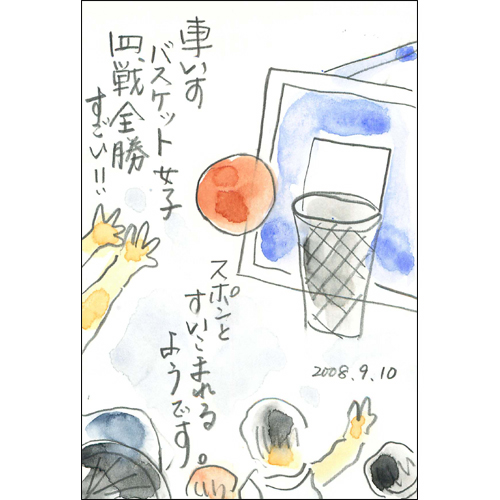 車いす
バスケット女子
四戦全勝
すごい!!
スポンと
すいこまれる
ようです。
2008.9.10